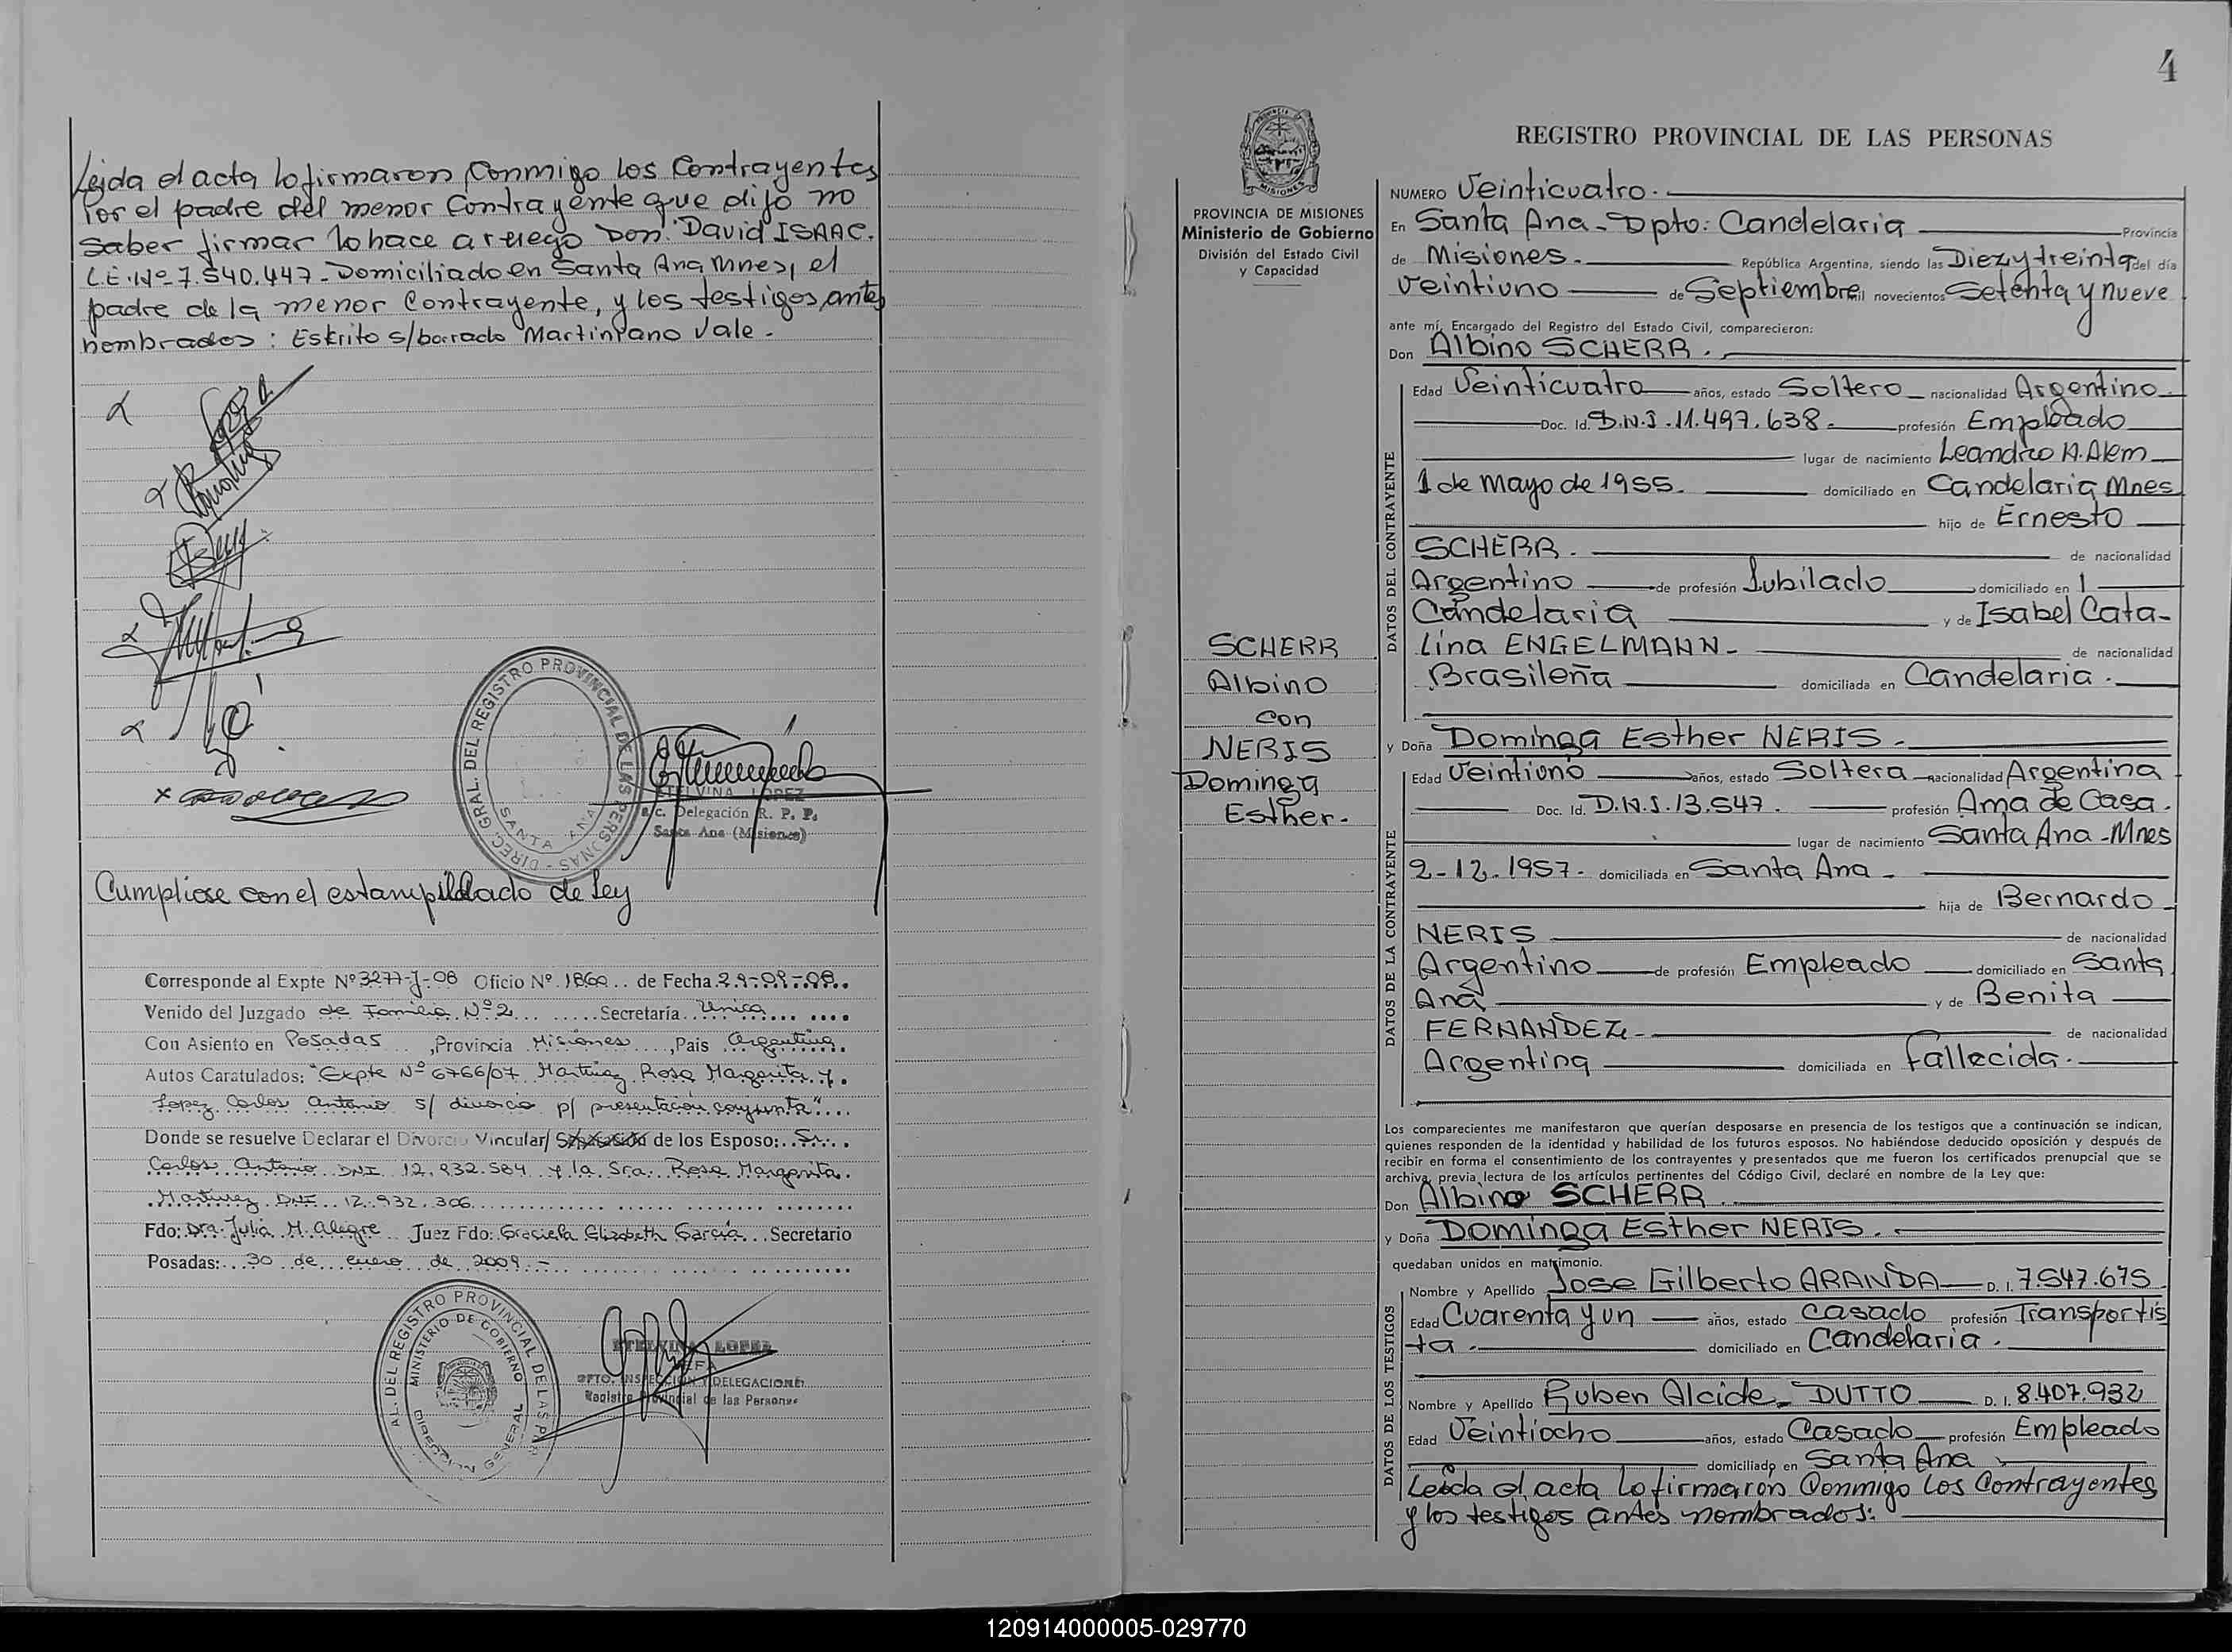 Leida el acta lo firmaron Conmigo los Contrayentes
Por el padre del menor Contrayente que dijo no
saber firmar lo hace a ruego Don: David ISAAC.
L.E.Nº 7.540.447- Domiciliado en Santa Ana Mnes, el
padre de la menor Contrayente, y los testigos antes
nombrados: Eskrito s/borrado Martiniano Vale.-
DIREC. GRAL. DEL REGISTRO PROVINCIAL DE LAS PERSONAS -
SANTA ANA
ETELVINA LOPEZ
E. c. Delegación R. P. P.
Santa Ana (Misiones)
Cumpliose con el estampillado de Ley
Corresponde al Expte Nº 3277-J-08 Oficio Nº 1860 de Fecha 29-09-08
Venido del Juzgado de Familia Nº 2 Secretaría Unica
Con Asiento en Posadas, Provincia Misiones, Pais Argentina.
Autos Caratulados: "Expte Nº 6766/07 Martinez Rosa Margarita y.
Lopez Carlos Antonio s/ divorcio p/ presentación conjunta"
Donde se resuelve Declarar el Divorcio Vincular/ Separación de los Esposo: Sr.
Carlos Antonio DNI 12.932.584 y la Sra. Rosa Margarita
Martinez DNI 12.932.306
Fdo: Dra. Julia M. Alegre Juez Fdo: Graciela Elizabeth García Secretario
Posadas: 30 de enero de 2009.-
DEL REGISTRO PROVINCIAL DE LAS
MINISTERIO DE GOBIERNO
DIRECCION GENERAL
ETELVINA LOPEZ
JEFA
DPTO. INSPECCION DELEGACIONES
Registro Provincial de las Personas
4
PROVINCIA DE MISIONES
Ministerio de Gobierno
División del Estado Civil
y Capacidad
SCHERR
Albino
con
NERIS
Dominga
Esther.-
REGISTRO PROVINCIAL DE LAS PERSONAS
NUMERO Veinticuatro.
En Santa Ana - Dpto: Candelaria Provincia
de Misiones. República Argentina, siendo las Diez y treinta del día
veintiuno de Septiembre mil novecientos Setenta y nueve
ante mí, Encargado del Registro del Estado Civil, comparecieron:
Don Albino SCHERR.
DATOS DEL CONTRAYENTE
Edad Veinticuatro años, estado Soltero nacionalidad Argentino
Doc. Id. D.N.I. 11.497.638. profesión Empleado
lugar de nacimiento Leandro N. Alem
1 de mayo de 1955. domiciliado en Candelaria Mnes
hijo de Ernesto
SCHERR. de nacionalidad
Argentino de profesión Jubilado domiciliado en
Candelaria y de Isabel Cata-
lina ENGELMANN - de nacionalidad
Brasileña domiciliada en Candelaria.
y Doña Dominga Esther NERIS.
DATOS DE LA CONTRAYENTE
Edad Veintiuno años, estado Soltera nacionalidad Argentina
Doc. Id. D.N.I. 13.547. profesión Ama de Casa.
lugar de nacimiento Santa Ana - Mnes
2-12-1957- domiciliada en Santa Ana -
hija de Bernardo
NERIS de nacionalidad
Argentino de profesión Empleado domiciliado en Santa
Ana y de Benita
FERNANDEZ - de nacionalidad
Argentina domiciliada en Fallecida.
Los comparecientes me manifestaron que querían desposarse en presencia de los testigos que a continuación se indican,
quienes responden de la identidad y habilidad de los futuros esposos. No habiéndose deducido oposición y después de
recibir en forma el consentimiento de los contrayentes y presentados que me fueron los certificados prenupcial que se
archiva, previa lectura de los artículos pertinentes del Código Civil, declaré en nombre de la Ley que:
Don Albino SCHERR
y Doña Dominga Esther NERIS.
quedaban unidos en matrimonio.
DATOS DE LOS TESTIGOS
Nombre y Apellido Jose Gilberto ARANDA D. I. 7.547.675
Edad Cuarenta y un años, estado Casado profesión Transportis
ta. domiciliado en Candelaria.
Nombre y Apellido Ruben Alcide DUTTO D. I. 8.407.932
Edad Veintiocho años, estado Casado profesión Empleado
domiciliado en Santa Ana
Leida el acta lo firmaron Conmigo los Contrayentes
y los testigos antes nombrados:
120914000005-029770